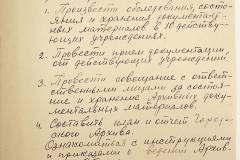 1. Произвести обследования, состо-
яния и хранения документаль-
ных материалов в 10 действу-
ющих учреждениях.
2. Провести прием документации,
от действующих учреждений.
3. Провести совещание с ответст-
венными лицами за состоя-
ние и хранение Архивных доку-
ментальных материалов.
4. Составить план и отчет Город-
ского Архива.
Ознакомиться с инструкциями
и приказами о ведении Архив-